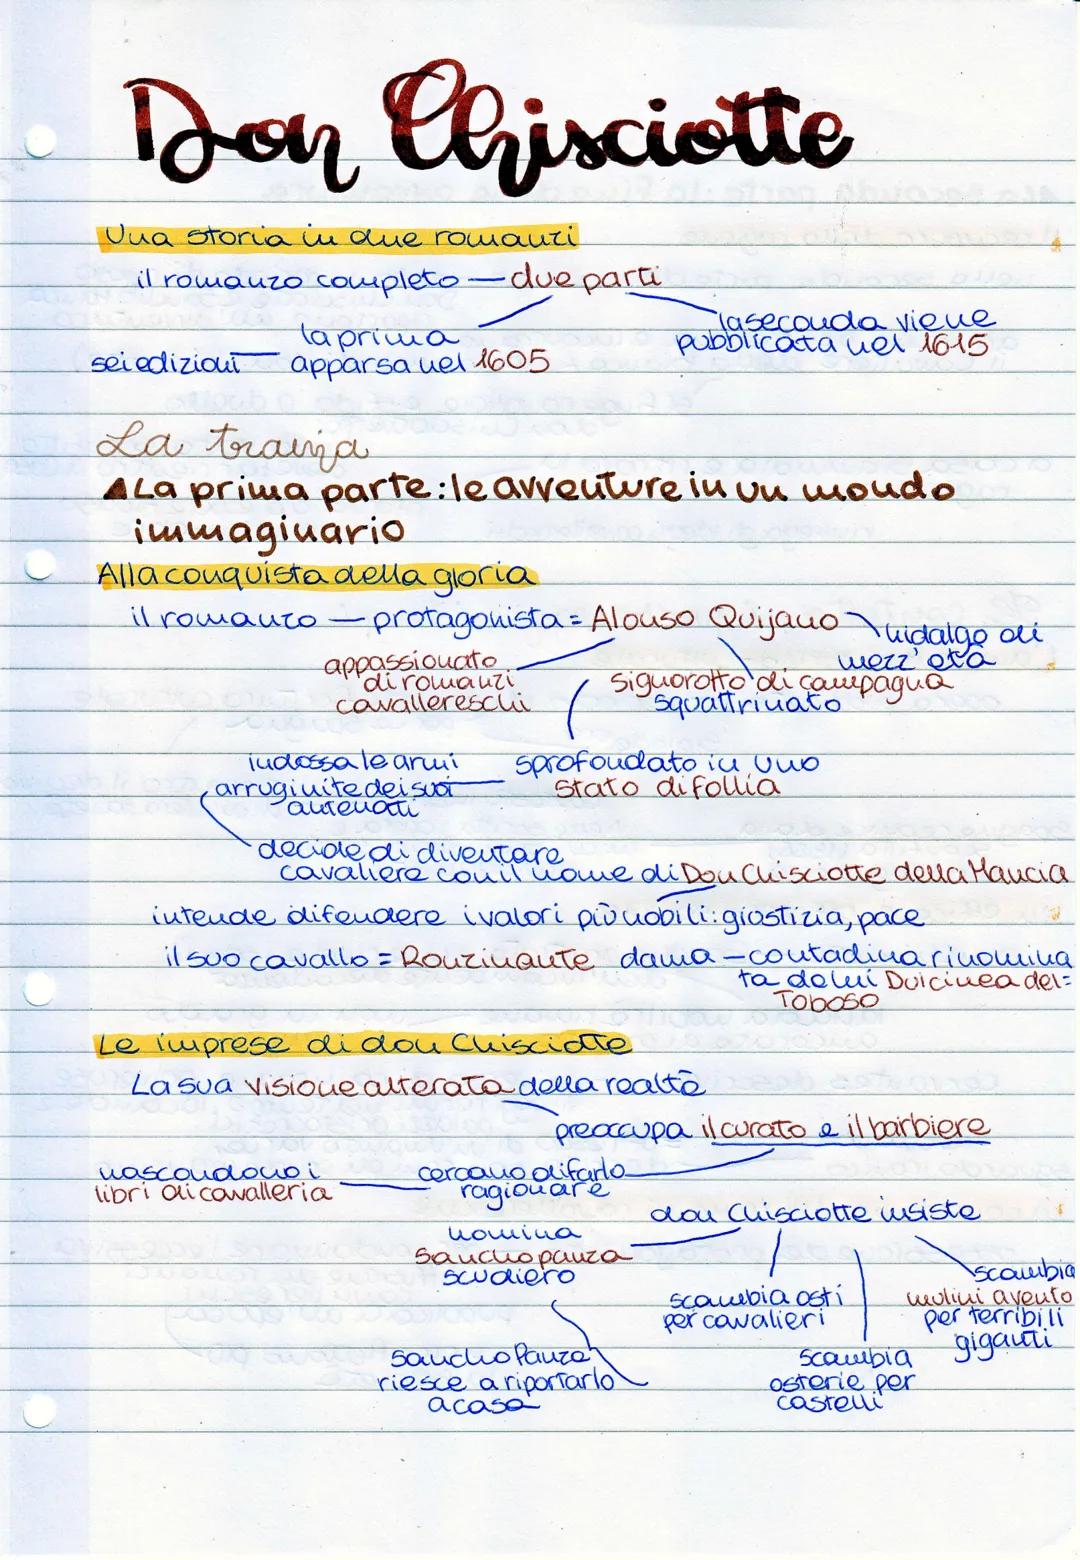 Don Chisciotte
Una storia in due romanzi
il romanzo completo — due parti
la prima
sei edizioni — apparsa nel 1605
la seconda viene
pubblicata nel 1615
La trama
La prima parte: le avventure in un mondo
immaginario
Alla conquista della gloria
il romanzo — protagonista = Alonso Quijano
hidalgo di
mezz'età
appassionato
di romanzi
cavallereschi
signorotto di campagna
squattrinato
indossa le armi
arruginite dei suoi
antenati
sprofondato in uno
stato di follia
decide di diventare
cavaliere con il nome di Don Chisciotte della Mancia
intende difendere i valori più nobili: giustizia, pace
il suo cavallo = Ronzinante
dama — contadina rinomina
ta da lui Dulcinea del=
Toboso
Le imprese di don Chisciotte
La sua visione alterata della realtà
preoccupa il curato e il barbiere
nascondono i
libri di cavalleria
cercano di farlo
ragionare
don Chisciotte insiste
nomina
Sancho panza
scudiero
scambia osti
per cavalieri
scambia
mulini a vento
per terribili
giganti
Sancho Panza
riesce a riportarlo
a casa
scambia
osterie per
castelli